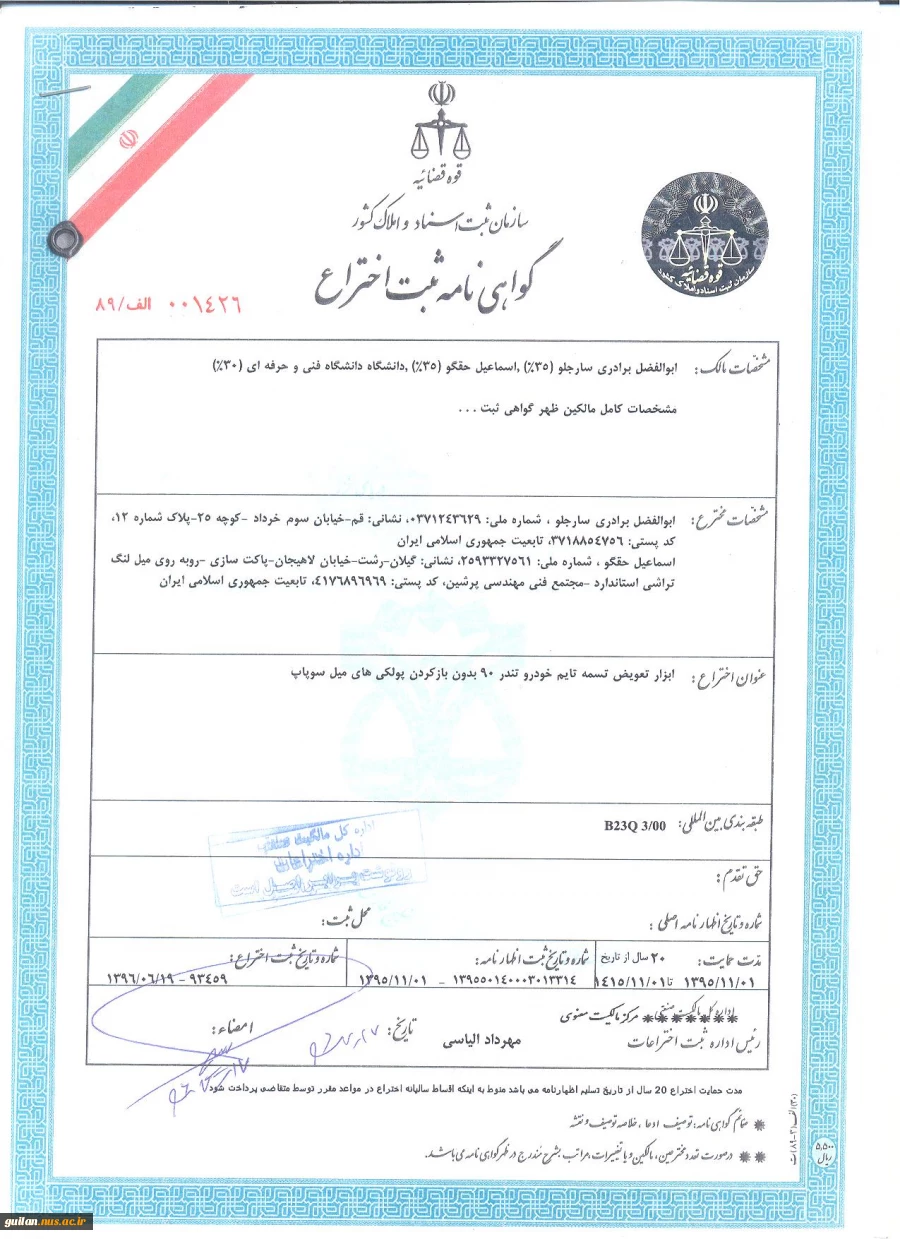 قوه قضائیه
سازمان ثبت اسناد و املاک کشور
گواهی نامه ثبت اختراع
قوه قضائیه
سازمان ثبت اسناد و املاک کشور
۰۰۱۴۲۶ الف/۸۹
مشخصات مالک: ابوالفضل برادری سارجلو (۳۵٪) ,اسماعیل حقگو (۳۵٪) ,دانشگاه دانشگاه فنی و حرفه ای (۳۰٪)
مشخصات کامل مالکین ظهر گواهی ثبت . . .
مشخصات مخترع: ابوالفضل برادری سارجلو ، شماره ملی: ۰۳۷۱۲۴۳۶۲۹، نشانی: قم-خیابان سوم خرداد -کوچه ۲۵-پلاک شماره ۱۲،
کد پستی: ۳۷۱۸۸۵۴۷۵۶، تابعیت جمهوری اسلامی ایران
اسماعیل حقگو ، شماره ملی: ۲۵۹۳۳۲۷۵۶۱، نشانی: گیلان-رشت-خیابان لاهیجان-پاکت سازی -روبه روی میل لنگ
تراشی استاندارد -مجتمع فنی مهندسی پرشین، کد پستی: ۴۱۷۶۸۹۶۹۶۹، تابعیت جمهوری اسلامی ایران
عنوان اختراع: ابزار تعویض تسمه تایم خودرو تندر ۹۰ بدون بازکردن پولکی های میل سوپاپ
طبقه بندی بین المللی: B23Q 3/00
اداره کل مالکیت صنعتی
اداره اختراعات
رونوشت برابر اصل است
حق تقدم:
شماره و تاریخ اظهارنامه اصلی: محل ثبت:
مدت حمایت: ۲۰ سال از تاریخ
۱۳۹۵/۱۱/۰۱ تا ۱۴۱۵/۱۱/۰۱
شماره و تاریخ ثبت اظهارنامه:
۱۳۹۵۵۰۱۴۰۰۰۳۰۱۳۳۱۴ - ۱۳۹۵/۱۱/۰۱
شماره و تاریخ ثبت اختراع:
۹۳۴۵۹ - ۱۳۹۶/۰۶/۱۹
مرکز مالکیت معنوی
رئیس اداره ثبت اختراعات مهرداد الیاسی تاریخ: امضاء:
مدت حمایت اختراع 20 سال از تاریخ تسلیم اظهارنامه می باشد منوط به اینکه اقساط سالیانه اختراع در مواعد مقرر توسط متقاضی پرداخت شود
* ضمائم گواهی نامه: توصیف، ادعا، خلاصه توصیف و نقشه
** درصورت تعدد مخترعین، مالکین و یا تغییرات، مراتب بشرح مندرج در ظهر گواهی نامه می باشد.
۵،۵۰۰
ریال
guilan.nus.ac.ir